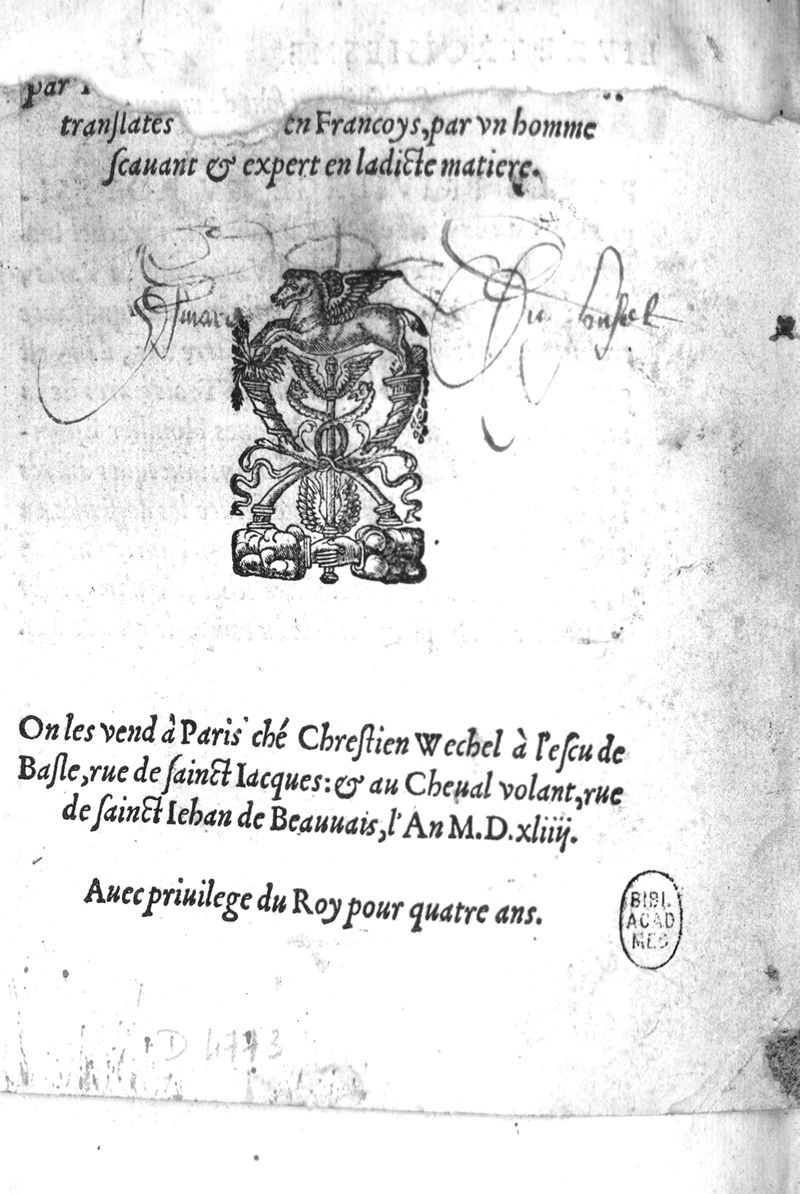 par
tranſlates en Francoys, par vn homme
ſcauant & expert en ladicte matiere.
On les vend à Paris ché Chreſtien Wechel à l'eſcu de
Baſle, rue de ſainct Iacques: & au Cheual volant, rue
de ſainct Iehan de Beauuais, l'An M.D.xliiij.
Auec priuilege du Roy pour quatre ans.
BIBL.
ACAD
MED
D 4773